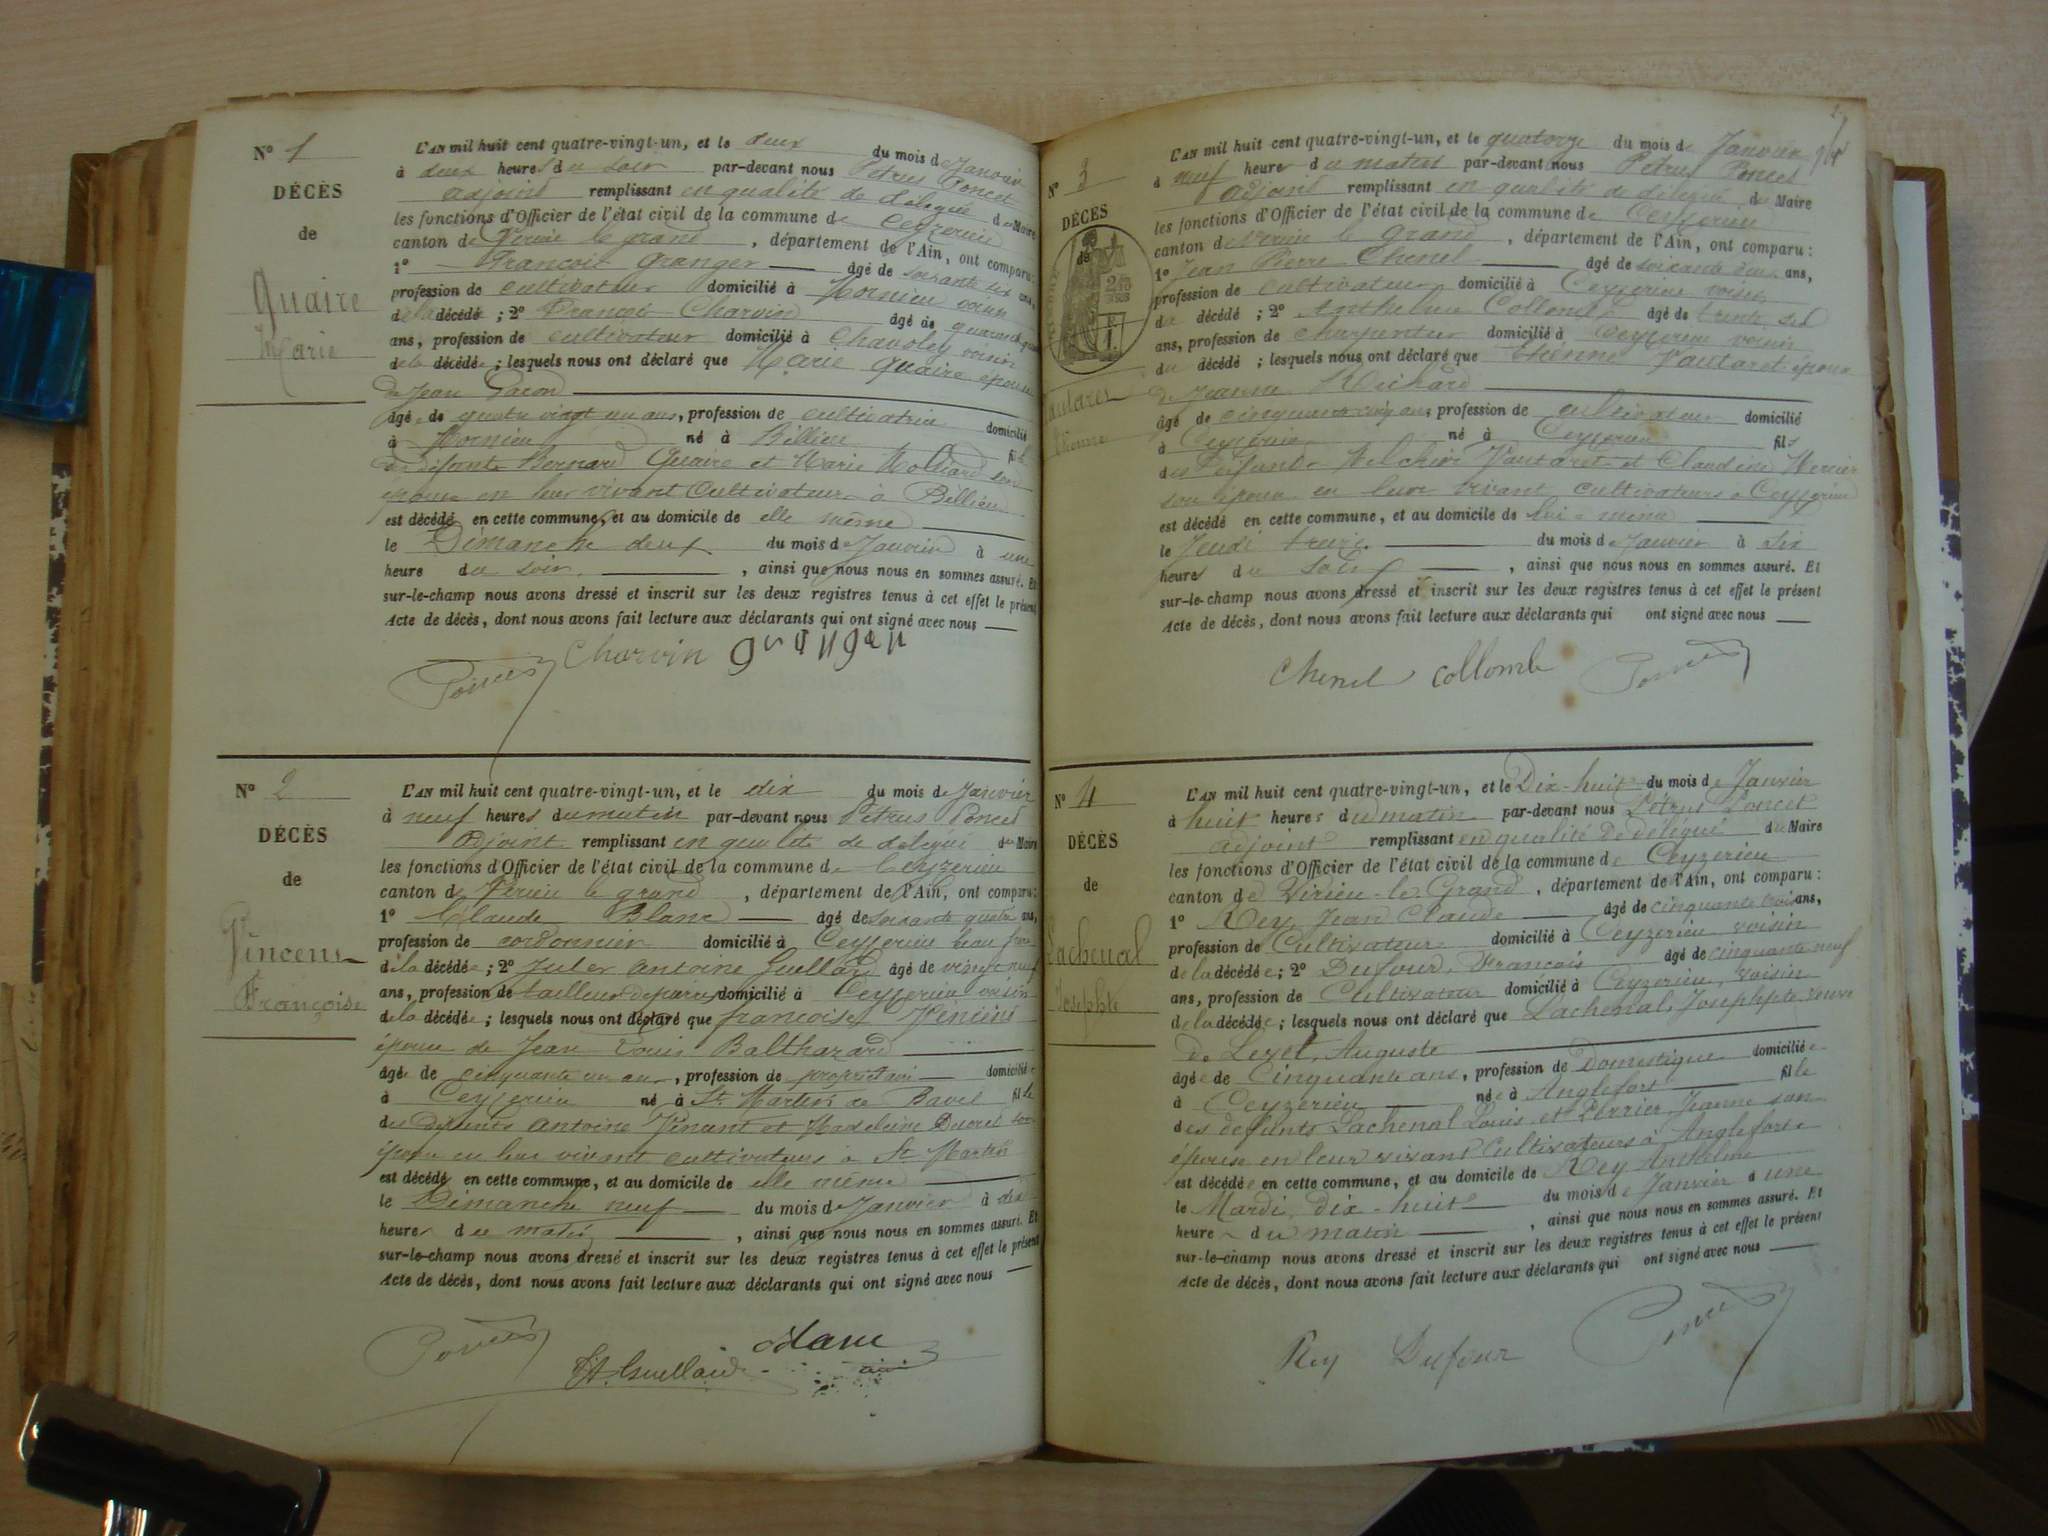 N° 1
DÉCÈS
de
Quaire
Marie
L'AN mil huit cent quatre-vingt-un, et le deux du mois de Janvier
à deux heures du soir par-devant nous Pétrus Poncet
adjoint remplissant en qualité de délégué du Maire
les fonctions d'Officier de l'état civil de la commune de Ceyzerieu
canton de Virieu le grand, département de l'Ain, ont comparu:
1° François Granger âgé de soixante six ans,
profession de cultivateur domicilié à Mornieu voisin
de la décédée; 2° François Charvin âgé de quarante
ans, profession de cultivateur domicilié à Chavoley voisin
de la décédée; lesquels nous ont déclaré que Marie Quaire épouse
de Jean Pacon
âgée de quatre vingt un ans, profession de cultivatrice domicilié
à Mornieu né à Béllieu fille
de défunts Bernard Quaire et Marie Molliard son
épouse en leur vivant Cultivateurs à Béllieu
est décédé en cette commune, et au domicile de elle même
le Dimanche deux du mois de Janvier à une
heure du soir, ainsi que nous nous en sommes assuré. Et
sur-le-champ nous avons dressé et inscrit sur les deux registres tenus à cet effet le présent
Acte de décès, dont nous avons fait lecture aux déclarants qui ont signé avec nous
Charvin granger
Poncet
N° 2
DÉCÈS
de
Vincent
Françoise
L'AN mil huit cent quatre-vingt-un, et le dix du mois de Janvier
à neuf heures du matin par-devant nous Pétrus Poncet
Adjoint remplissant en qualité de délégué du Maire
les fonctions d'Officier de l'état civil de la commune de Ceyzerieu
canton de Virieu le grand, département de l'Ain, ont comparu:
1° Claude Blanc âgé de soixante quatre ans,
profession de cordonnier domicilié à Ceyzerieu beau frère
de la décédée; 2° Jules Antoine Guellard âgé de vingt neuf
ans, profession de tailleur de pierres domicilié à Ceyzerieu voisin
de la décédée; lesquels nous ont déclaré que françoise Vincent
épouse de Jean Louis Balthazard
âgée de cinquante un ans, profession de propriétaire domiciliée
à Ceyzerieu né à St Martin de Bavel fille
des défunts Antoine Vincent et Madeleine Ducret son
épouse en leur vivant cultivateurs à St Martin
est décédé en cette commune, et au domicile de elle même
le Dimanche neuf du mois de Janvier à dix
heures du matin, ainsi que nous nous en sommes assuré. Et
sur-le-champ nous avons dressé et inscrit sur les deux registres tenus à cet effet le présent
Acte de décès, dont nous avons fait lecture aux déclarants qui ont signé avec nous
Poncet
Guellard
blanc
N° 3
DÉCÈS
de
Vautaret
Etienne
L'AN mil huit cent quatre-vingt-un, et le quatorze du mois de Janvier
à neuf heures du matin par-devant nous Pétrus Poncet
Adjoint remplissant en qualité de délégué du Maire
les fonctions d'Officier de l'état civil de la commune de Ceyzerieu
canton de Virieu le grand, département de l'Ain, ont comparu:
1° Jean Pierre Chenel âgé de soixante deux ans,
profession de cultivateur domicilié à Ceyzerieu voisin
du décédé; 2° Anthelme Collomb âgé de trente six
ans, profession de charpentier domicilié à Ceyzerieu voisin
du décédé; lesquels nous ont déclaré que Etienne Vautaret époux
de Jeanne Richard
âgé de cinquante cinq ans, profession de cultivateur domicilié
à Ceyzerieu né à Ceyzerieu fils
des défunts Melchior Vautaret et Claudine Mercier
son épouse en leur vivant cultivateurs à Ceyzerieu
est décédé en cette commune, et au domicile de lui-même
le Jeudi treize du mois de Janvier à six
heures du soir, ainsi que nous nous en sommes assuré. Et
sur-le-champ nous avons dressé et inscrit sur les deux registres tenus à cet effet le présent
Acte de décès, dont nous avons fait lecture aux déclarants qui ont signé avec nous
Chenel collomb Poncet
N° 4
DÉCÈS
de
Lachenal
Josephte
L'AN mil huit cent quatre-vingt-un, et le Dix-huit du mois de Janvier
à huit heures du matin par-devant nous Pétrus Poncet
adjoint remplissant en qualité de délégué du Maire
les fonctions d'Officier de l'état civil de la commune de Ceyzerieu
canton de Virieu-le-Grand, département de l'Ain, ont comparu:
1° Rey Jean Claude âgé de cinquante trois ans,
profession de Cultivateur domicilié à Ceyzerieu voisin
de la décédée; 2° Dufour, François âgé de cinquante neuf
ans, profession de Cultivateur domicilié à Ceyzerieu, voisin
de la décédée; lesquels nous ont déclaré que Lachenal, Josephpte, veuve
de Lexel, Auguste
âgée de Cinquante ans, profession de Domestique domiciliée
à Ceyzerieu née à Anglefort fille
des défunts Lachenal Louis et Perrier Jeanne son
épouse en leur vivant Cultivateurs à Anglefort
est décédée en cette commune, et au domicile de Rey Anthelme
le Mardi, Dix-huit du mois de Janvier à une
heure du matin, ainsi que nous nous en sommes assuré. Et
sur-le-champ nous avons dressé et inscrit sur les deux registres tenus à cet effet le présent
Acte de décès, dont nous avons fait lecture aux déclarants qui ont signé avec nous
Rey Dufour Poncet